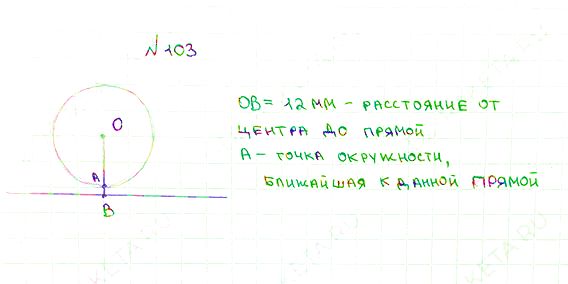 N 103
O
OB = 12 мм - расстояние от
центра до прямой
A - точка окружности,
ближайшая к данной прямой
A
B